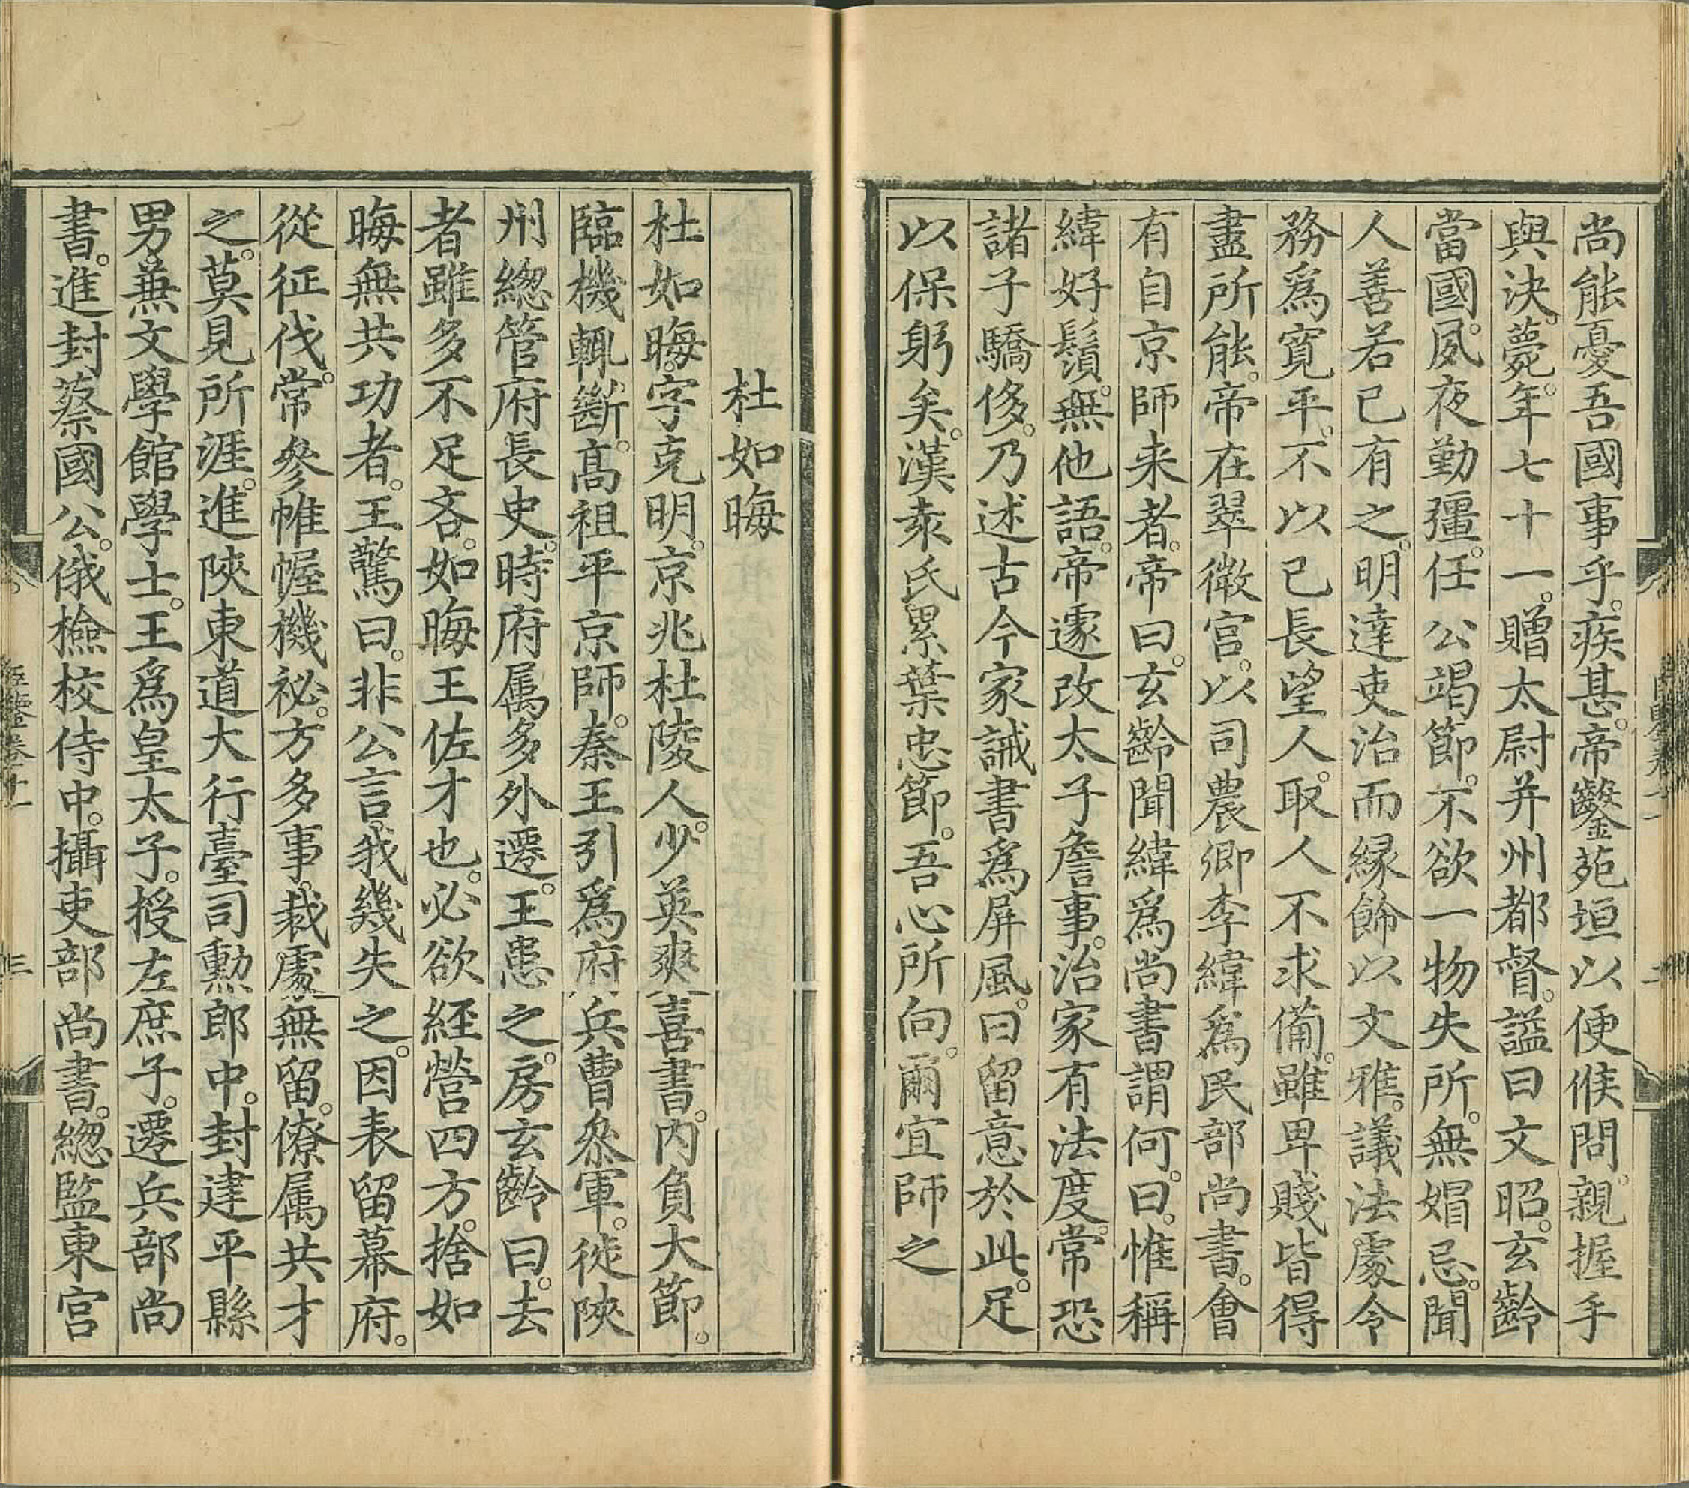 尚能憂吾國事乎。疾甚。帝鑿苑垣以便候問。親握手
與決。薨。年七十一。贈太尉并州都督。謚曰文昭。玄齡
當國。夙夜勤彊。任公竭節。不欲一物失所。無媢忌。聞
人善若已有之。明達吏治而緣飾以文雅。議法處令
務爲寬平。不以已長望人。取人不求備。雖卑賤皆得
盡所能。帝在翠微宮。以司農卿李緯爲民部尚書。會
有自京師来者。帝曰。玄齡聞緯爲尚書謂何。曰。惟稱
緯好鬚。無他語。帝遽改太子詹事。治家有法度。常恐
諸子驕侈。乃述古今家誡書爲屏風。曰留意於此。足
以保躬矣。漢袁氏累葉忠節。吾心所向。爾宜師之
杜如晦
杜如晦。字克明。京兆杜陵人。少英爽喜書。內負大節。
臨機輒斷。高祖平京師。秦王引爲府兵曹叅軍。徙陝
州緫管府長史。時府属多外遷。王患之。房玄齡曰。去
者雖多不足吝。如晦王佐才也。必欲経營四方。捨如
晦無共功者。王驚曰。非公言。我幾失之。因表留幕府。
從征伐。常參帷幄機祕。方多事。裁處無留。僚属共才
之。莫見所涯。進陝東道大行臺司勳郎中。封建平縣
男。兼文學館學士。王爲皇太子。授左庶子。遷兵部尚
書。進封蔡國公。俄檢校侍中。攝吏部尚書。緫監東宮
三